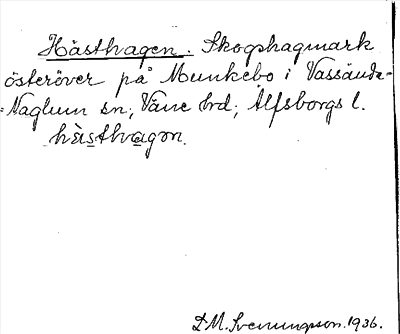 Hästhagen. Skogshagmark
österöver på Munkebo i Vassända-
=Naglum sn, Väne hd, Älfsborgs l.
hästhvagɷn.
D.M. Svenungsson. 1936.